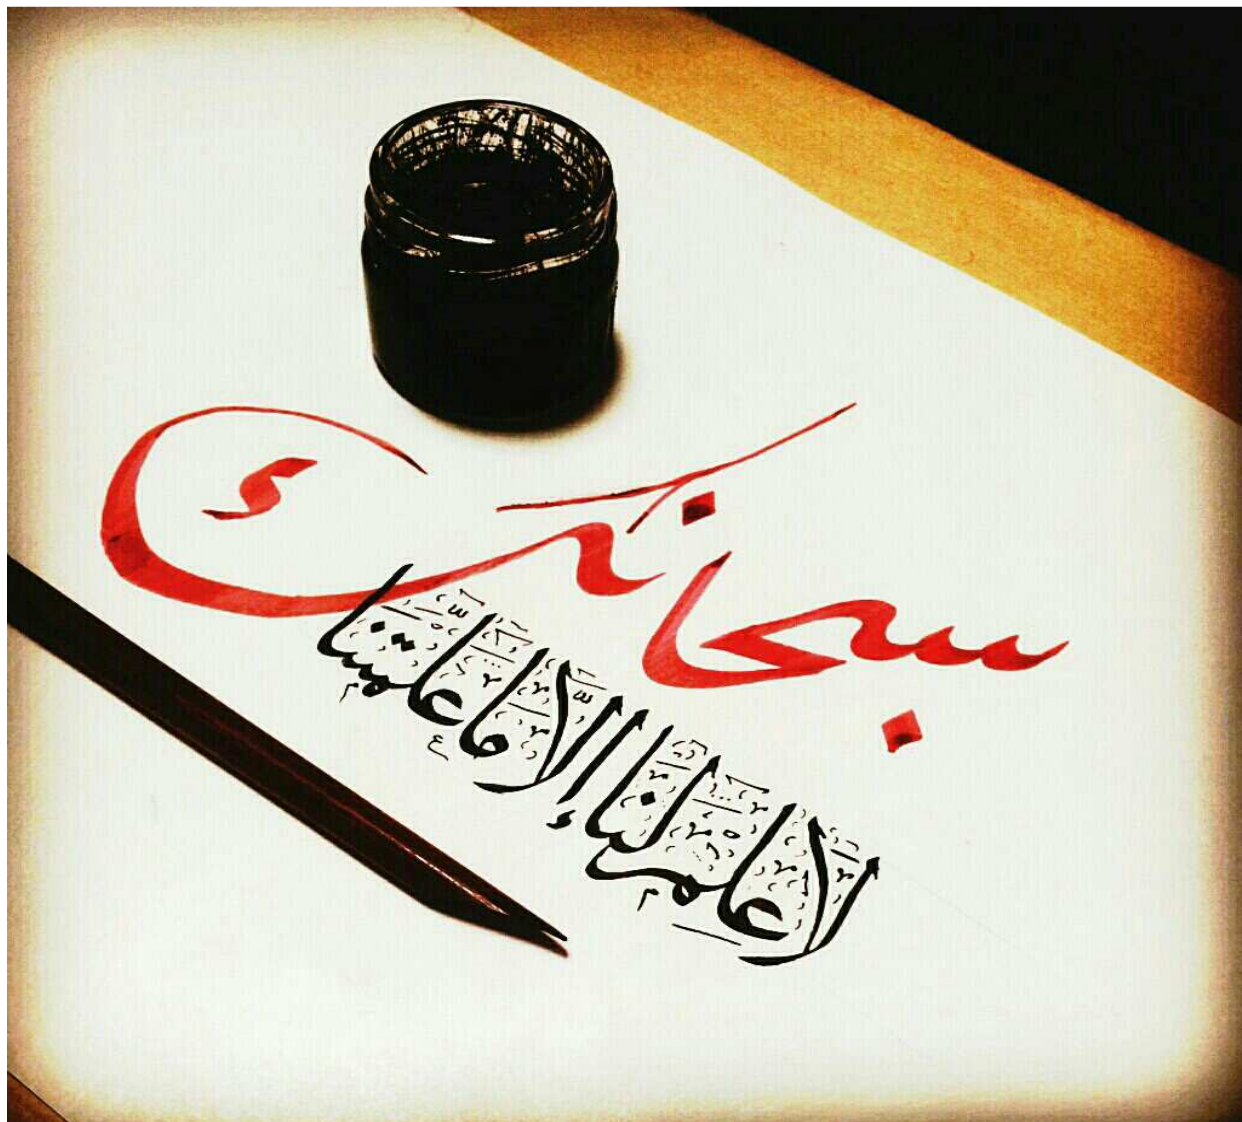 سبحانك
لا علم لنا إلا ما علمتنا